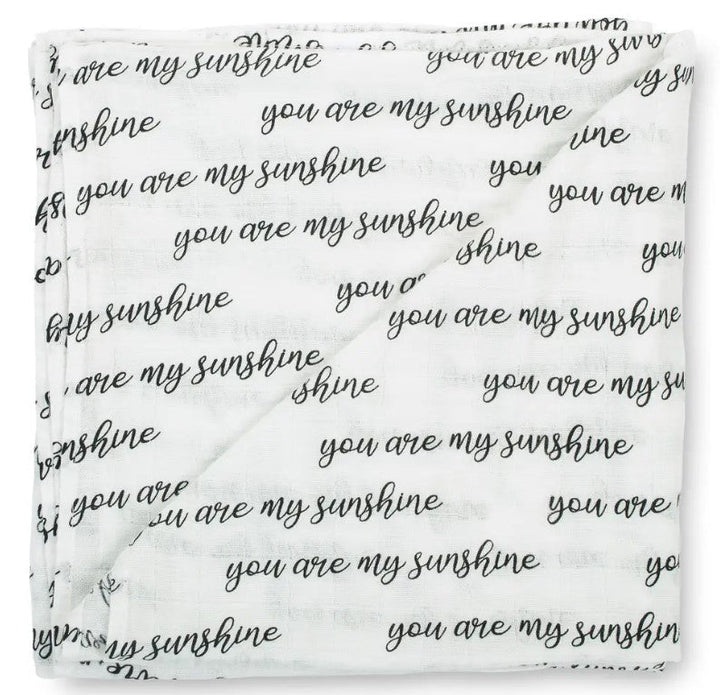 are my sunshine you are my sun
my su
nshine you are my sunshine
ine
you are my sunshine you
you are m
you are my sunshine
shine you
you a
my sunshine
you are my sunshine
are my sunshine
shine you are my su
nshine
you are my sunshine
you are
ou are my sunshine you are
you are my sunshine yo
my sunshine you are my sunshin